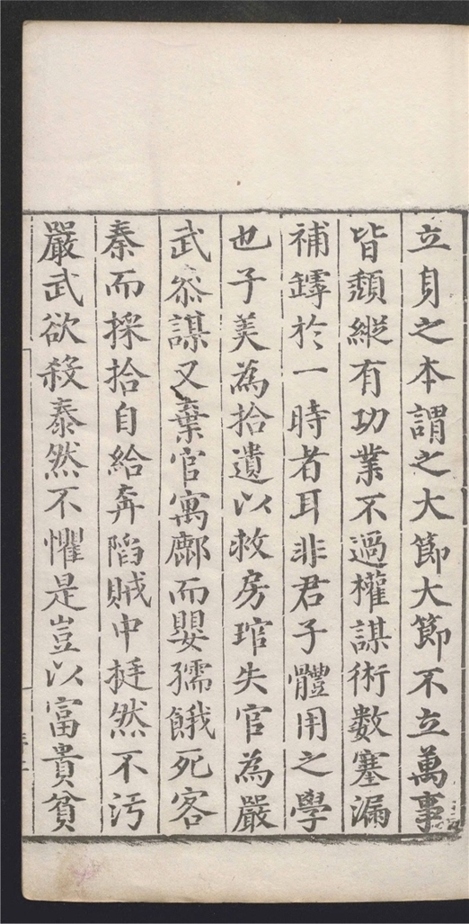 立身之本謂之大節大節不立萬事
皆頽縱有功業不過權謀術數塞漏
補罅於一時者耳非君子體用之學
也子美為拾遺以救房琯失官為嚴
武叅謀又棄官寓鄜而嬰孺餓死客
秦而採拾自給奔陷賊中挺然不汚
嚴武欲殺泰然不懼是豈以富貴貧